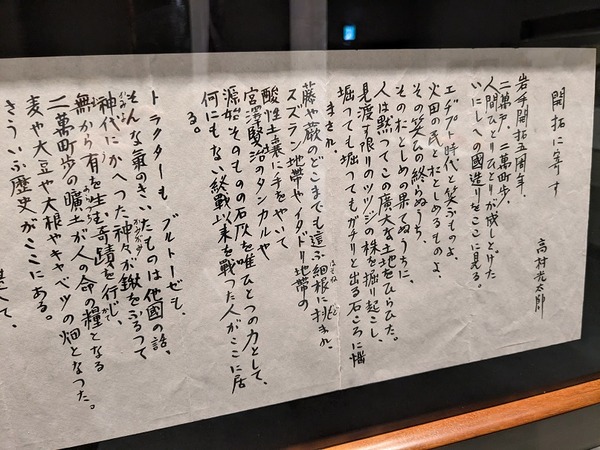 開拓に寄す
高村光太郎
岩手開拓五周年、
二萬戸、二萬町歩、
人間ひとりひとりが成しとげた
いにしへの國造りをここに見る。
エヂプト時代と笑ふものよ、
火田の民とおとしめるものよ、
その笑ひの終らぬうち、
そのおとしめの果てぬうちに、
人は黙つてこの廣大な土地をひらひた。
見渡す限りのツツジの株を掘り起こし、
掘つても掘つてもガチリと出る石ころに悩
まされ、
藤や蕨のどこまでも這ふ細根に挑まれ、
スズラン地帯やイタドリ地帯の
酸性土壌に手をやいて
宮澤賢治のタンカルや
源始そのものの石灰を唯ひとつの力として、
何にもない終戦以来を戦つた人がここに居
る。
トラクターもブルトーゼも、
そんな氣のきいたものは他國の話、
神代にかへつた神々が鍬をふるつて
無から有を生む奇蹟を行じ、
二萬町歩の曠土が人の命の糧となる
麦や大豆や大根やキャベツの畑となつた。
さういふ歴史がここにある。